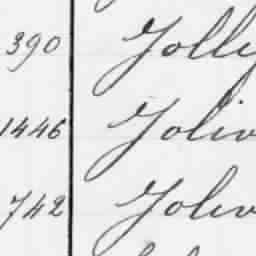 390 Jolly
1446 Joliv
742 Joliv